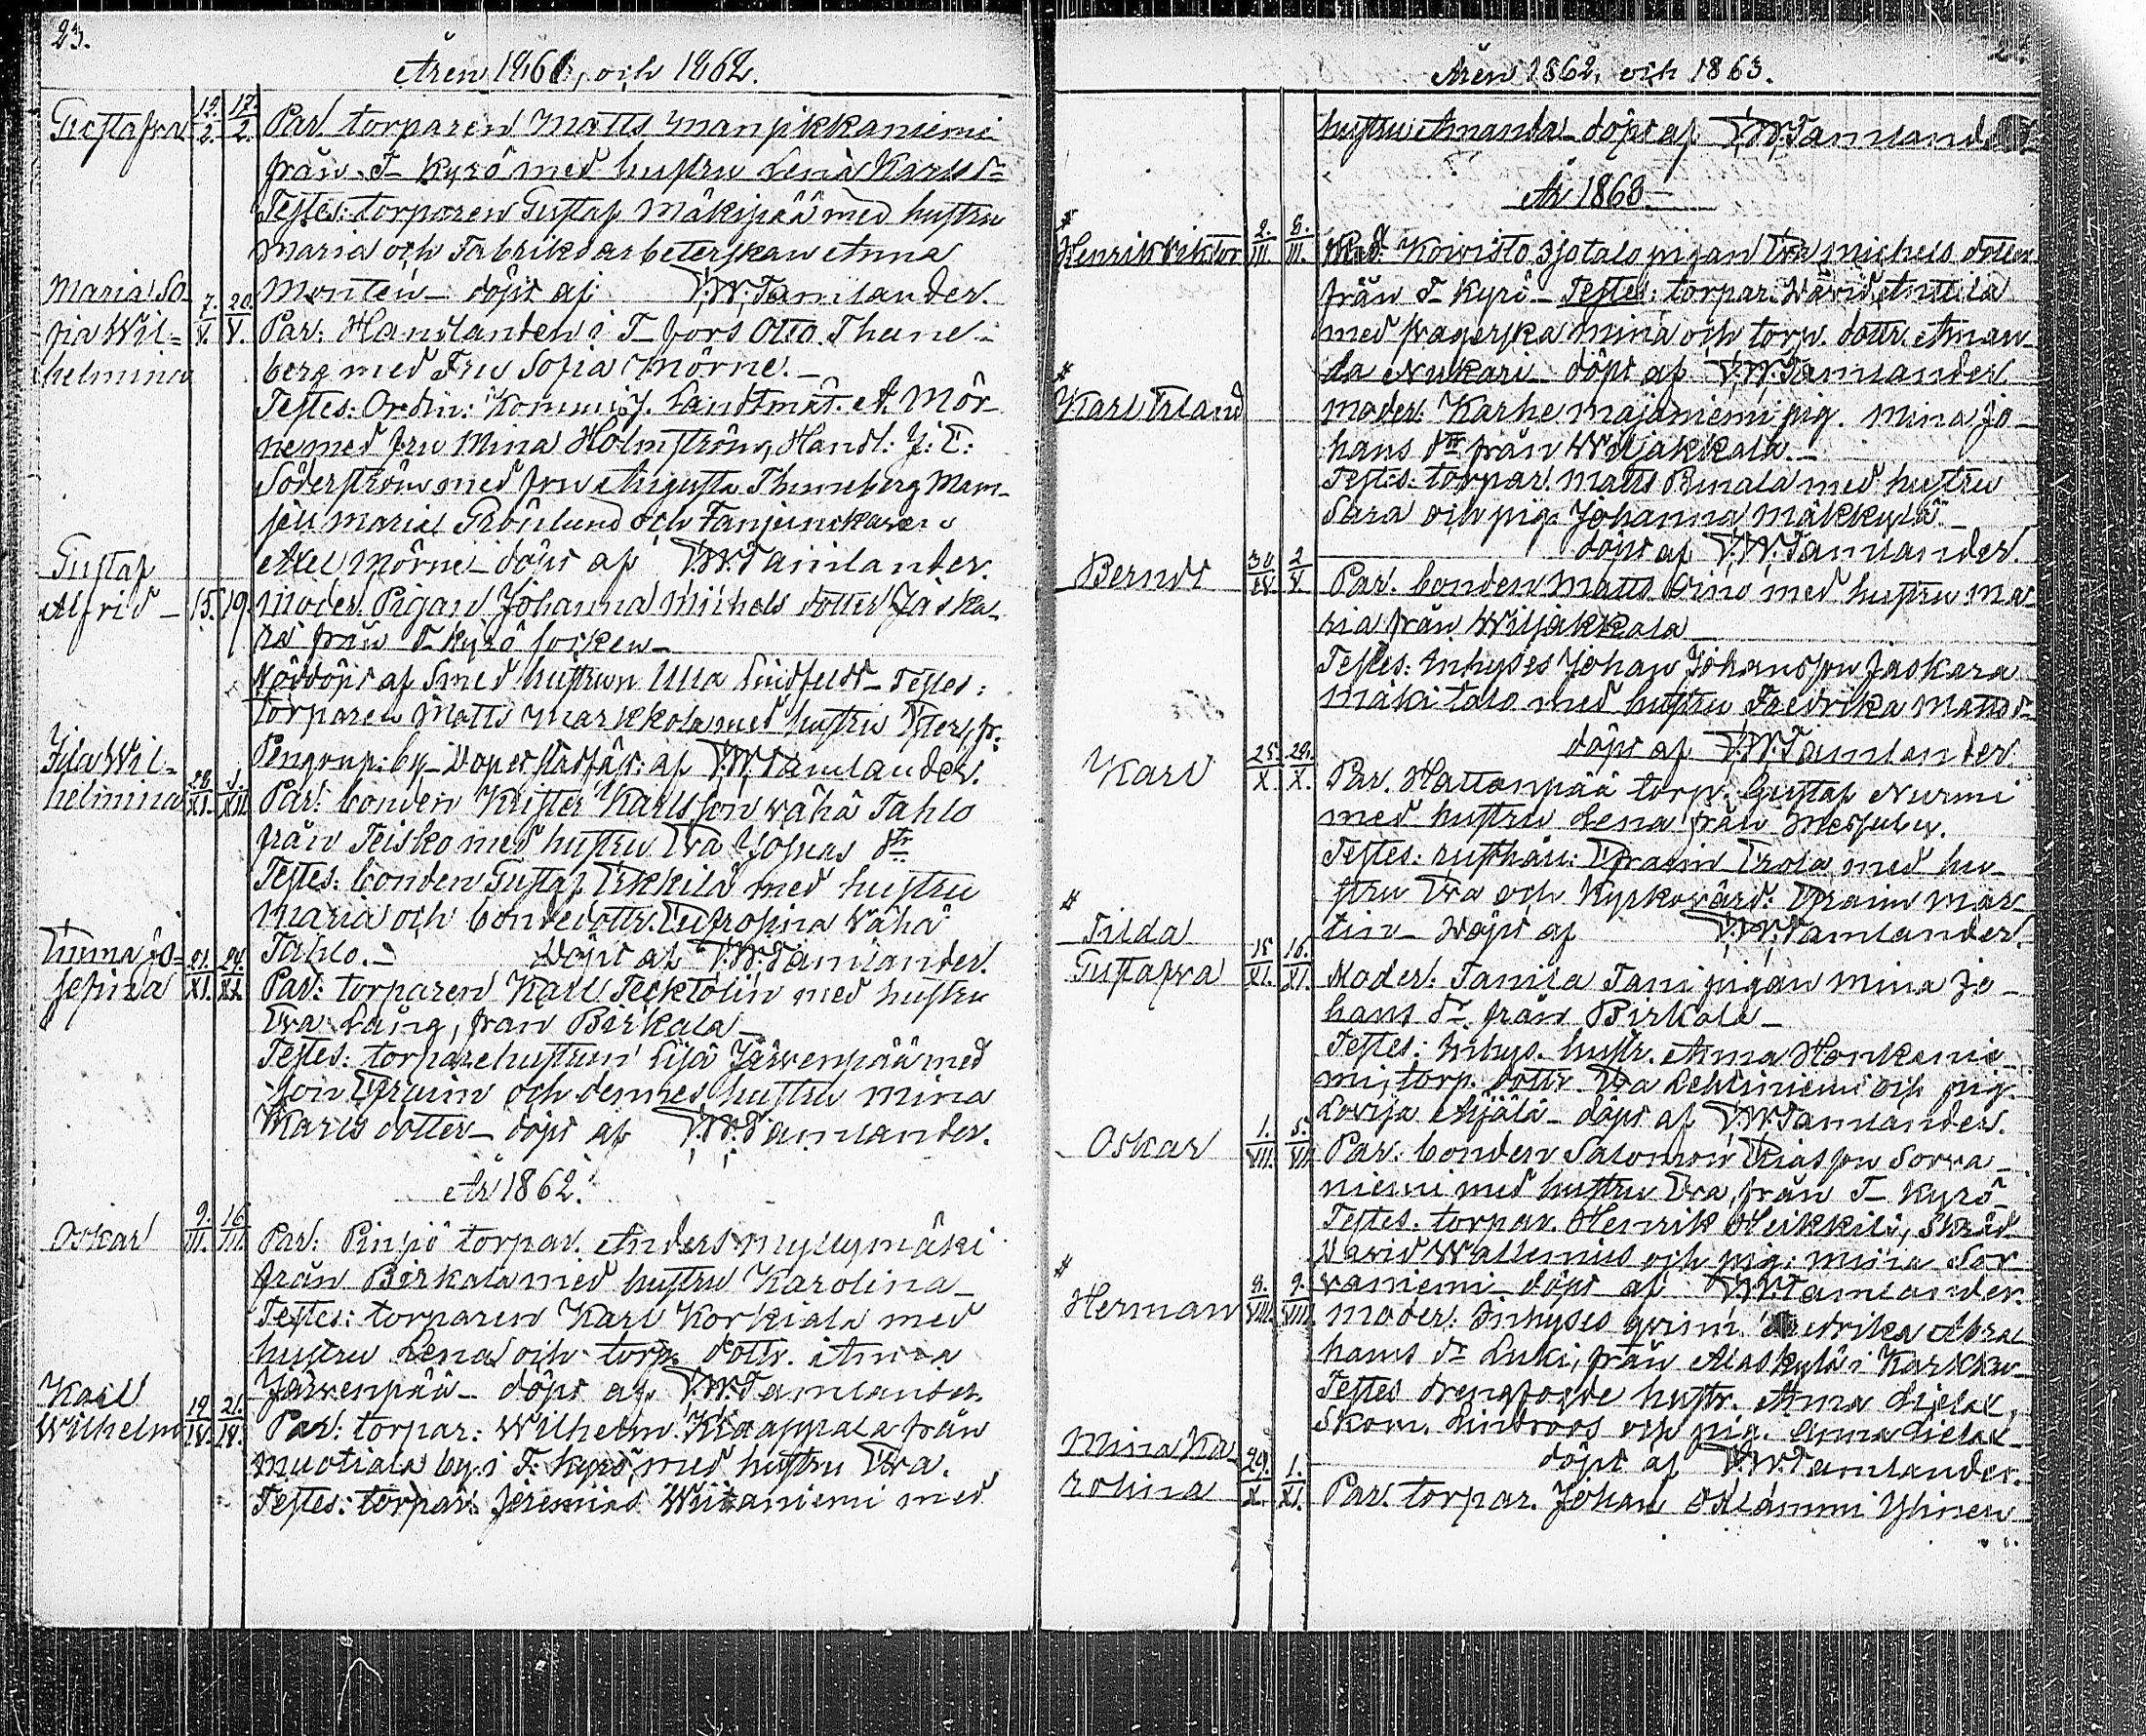 23.
Åren 1861, och 1862.
Gustafva 12./2. 17./2. Par. torparen Matts Manjikkaniemi
från T- Kyrö med hustru Lena Karlsdr
Testes: torparen Gustaf Mäkipää med hustru
Maria och Fabriksarbeterskan Anna
Montén - döpt af T.W. Tamlander.
Maria So-
fia Wil-
helmina 7./V. 20./V. Par: Handlanden i T-fors Otto Thune-
berg med Fru Sofia Mörne. -
Testes: Ordin: Kommiss. Landtmät. A. Mör-
ne med fru Mina Holmström, Handl: J: E:
Söderström med fru Augusta Thuneberg Mam-
sell Maria Grönlund och
Axel Mörne - döpt af T.W. Tamlander.
Gustaf
Alfrid - 15. 19. Moder. Pigan Johanna Michels dotter Jaska-
ra från T-kyrö socken -
Nöddöpt af Smed hustrun Ulla Lindfeldt - Testes:
torparen Matts Markkola med hustru Ester, fr.
by - Dopet stadfäst: af T.W. Tamlander.
Ida Wil-
helmina 28./XI. 1./XII. Par: bonden Krister Karlsson Wähä Tahlo
från Teisko med hustru Eva Josuas dtr
Testes: bonden Gustaf Erkkilä med hustru
Maria och bondedottr. Eufrosina Wähä
Tahlo. - Döpt af T.W. Tamlander.
Emma Jo-
sefina 21./XI. 24./XI. Par: torparen Karl Tecktolin med hustru
Eva Lång, från Birkala -
Testes: torparehustrun Lisa Järvenpää med
son Efraim och dennes hustru Mina
Karls dotter - döpt af T.W. Tamlander.
År 1862.
Oskar 9./III. 16./III. Par: Pinsiö torpar. Anders Myllymäki
från Birkala med hustru Karolina -
Testes: torparen Karl Korkiala med
hustru Lena och torp. dottr. Anna
Järvenpää - döpt af T.W. Tamlander.
Karl
Wilhelm 19/IV. 21./IV. Par: torpar: Wilhelm Kaappala från
Muotiala by i T: kyrö med hustru Eva.
Testes: torpar: Jeremias Wiitaniemi med
Åren 1862, och 1863.
hustru Amanda - döpt af T.W. Tamlander
År 1863 -
#
Henrik Viktor 2./III. 8./III. Mod: Koivisto Sjötalo pigan Eva Michels dotter
från T- Kyrö - Testes: torpar. David Anttila
med svägerska Mina och torp. dottr. Aman-
da Nukari - döpt af T.W. Tamlander
#
Karl Erland Moder: Karhe Majaniemi pig. Mina Jo-
hans dtr från Wiljakkala. -
Testes: torpar. Matts Rinala med hustru
Sara och pig. Johanna Mäkkylä -
döpt af T.W. Tamlander.
Berndt 30/IV. 2/V. Par. bonden Matts Oino med hustru Ma-
ria från Wiljakkala -
Testes: Inhyses Johan Johansson Jaskara
Mäkitalo med hustru Fredrika Mattsdr
döpt af T.W. Tamlander.
Karl 25./X. 29./X. Par. Hattanpää torp. Gustaf Nurmi
med hustru Lena från Messuby.
Testes: rusthåll: Efraim Erola med hu-
stru Eva och Kyrkovärd: Efraim Mar-
tin - Döpt af T.W. Tamlander.
#
Tilda
Gustafva 15/XI. 16./XI. Moder: Tamla Tani pigan Mina Jo-
hans dr. från Birkala -
Testes: Inhys. hustr. Anna Honkanie-
mi, torp. dottr Eva Lehtiniemi och pig.
Lovisa Ahjälä - döpt af T.W. Tamlander.
Oskar 1./VII. 5./VII. Par: bonden Salomon Eliasson Sorva-
niemi med hustru Eva, från T- Kyrö -
Testes. torpar. Henrik Heikkilä, Skräd.
David Wallenius och pig: Mina Sor-
vaniemi - döpt af T.W. Tamlander.
#
Herman 8./VIII. 9./VIII. Moder: Inhyses qvinn. Fredrika Abra-
hams dr Luki, från i Karkku -
Testes drengfogde hustr. Anna
Skom. Lindroos och pig. Anna
döpt af T.W. Tamlander.
Mina Ka-
rolina 29./X. 1./XI. Par. torpar. Johan Ylinen